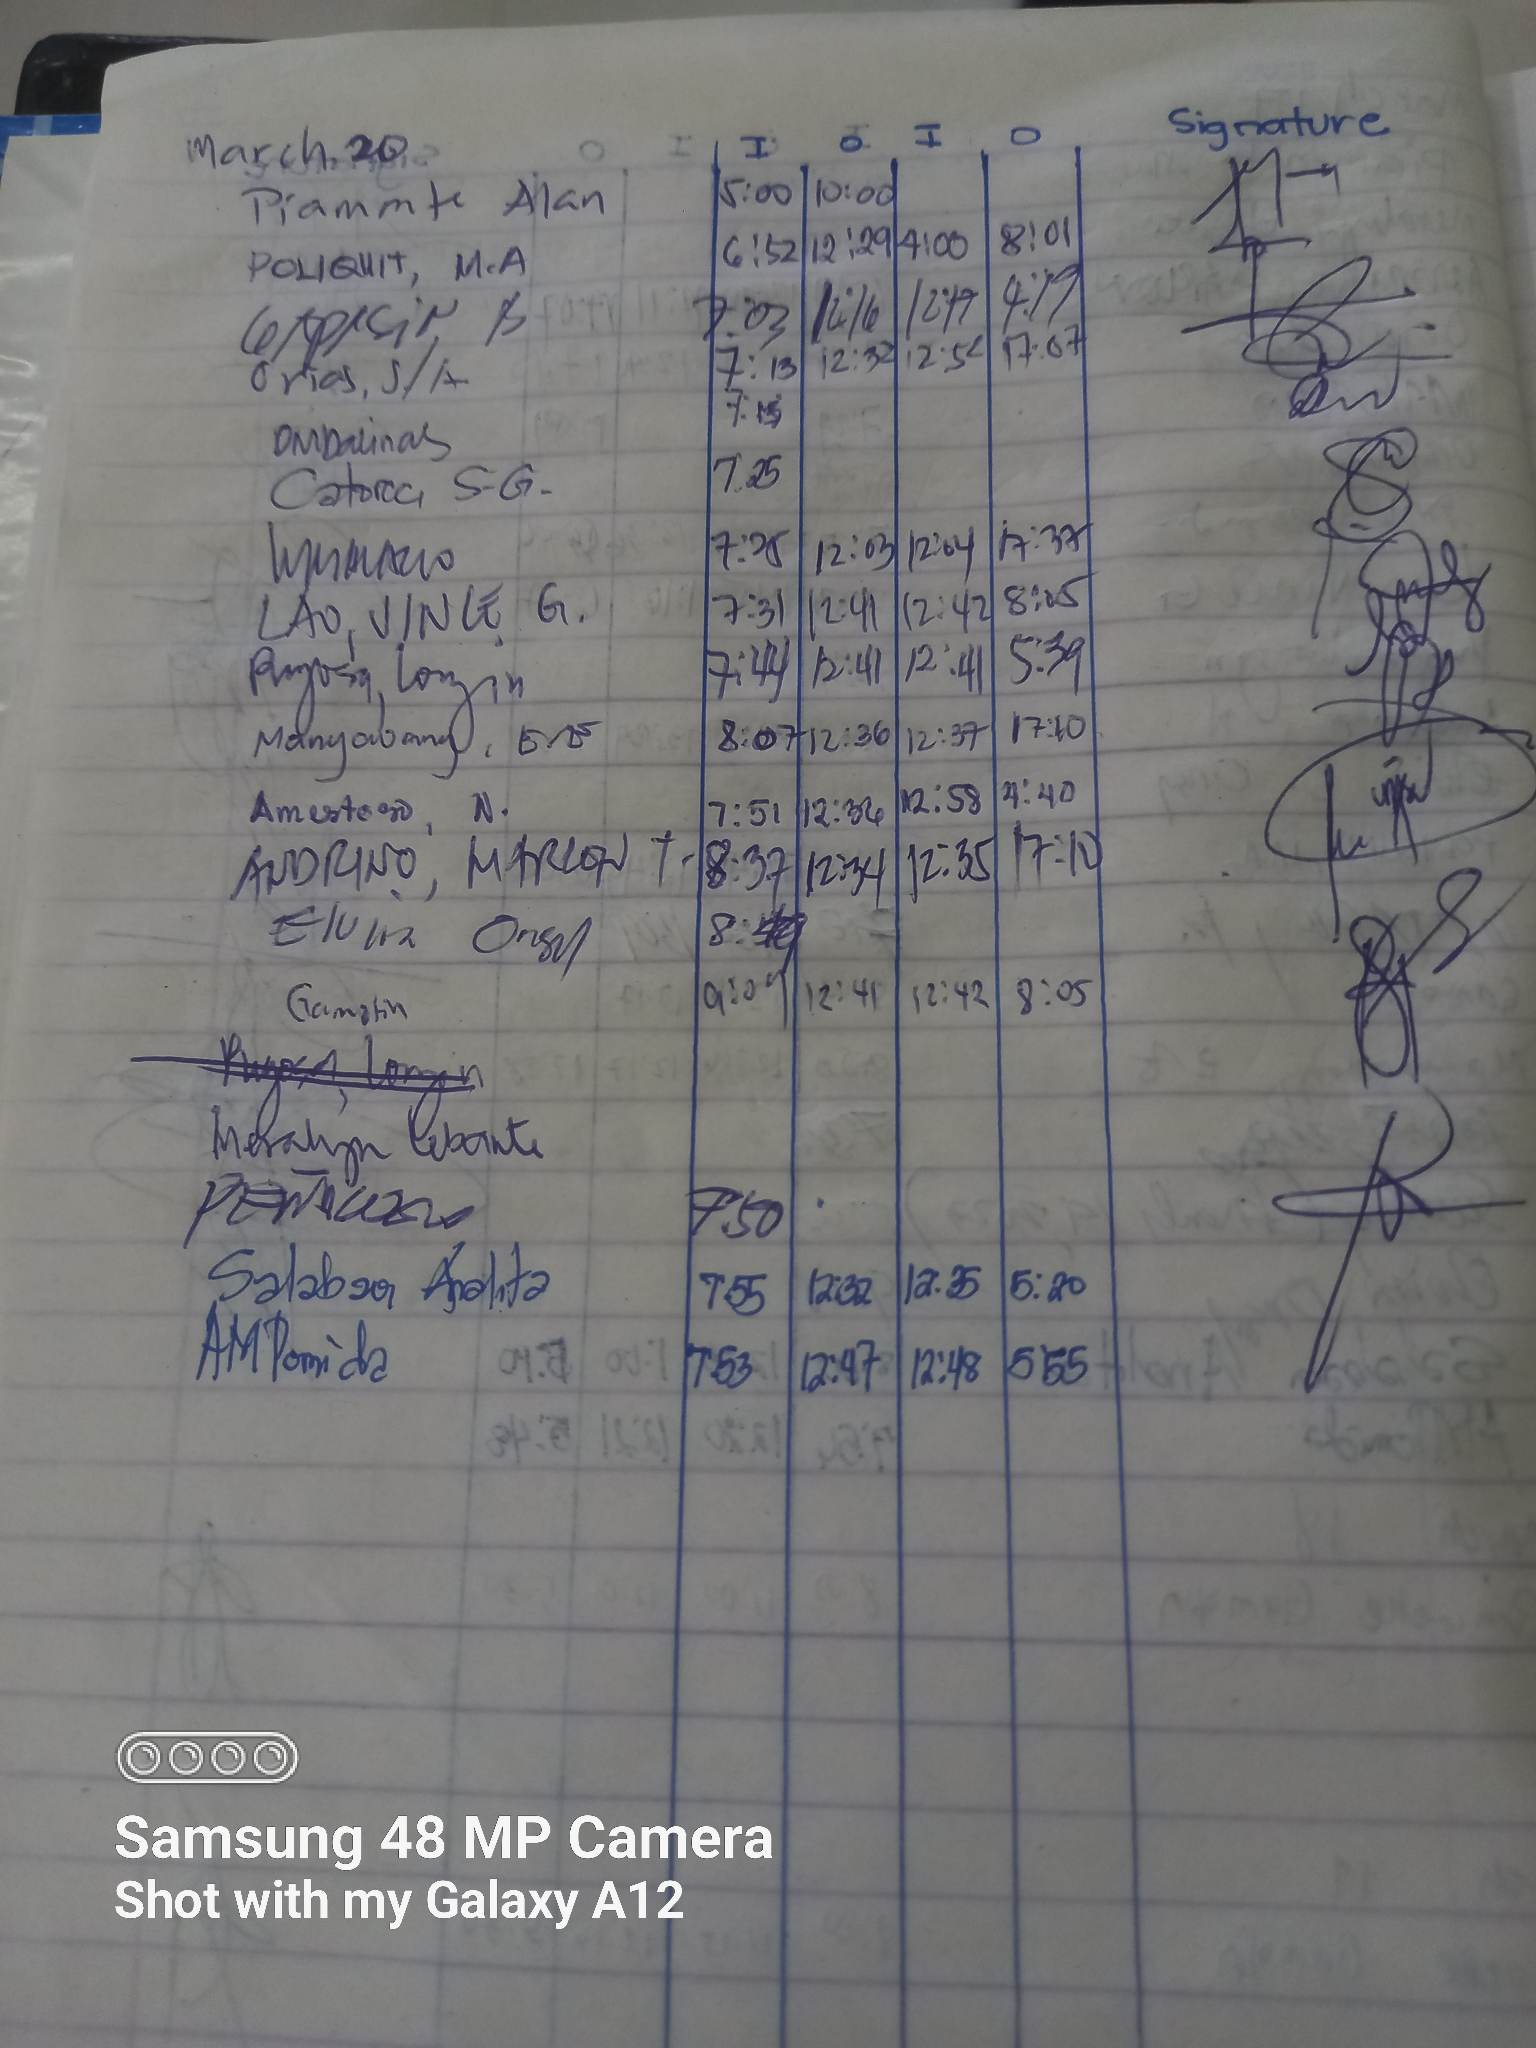 March 20 I O I O Signature
Piamonte Alan 5:00 10:00
POLIQUIT, M.A 6:52 12:29 4:00 8:01
7:03 12:16 12:17 4:19
Orias, J/A 7:13 12:32 12:52 17:07
7:15
Catorce S-G. 7:25
7:28 12:03 12:04 17:37
LAO, VINCE G. 7:31 12:41 12:42 8:05
Longin 7:44 12:41 12:41 5:39
Manyabang, E.B 8:07 12:36 12:37 17:10
Amestoso, N. 7:51 12:36 12:58 4:40
ANDRINO, MARLON T. 8:37 12:34 12:35 17:10
Elvira 8:
Gamotin 9:09 12:41 12:42 8:05
Longin
Meralyn
750
Salabsar Analita 7:55 12:32 12:35 5:20
AMPomida 7:53 12:47 12:48 5:55
Samsung 48 MP Camera
Shot with my Galaxy A12